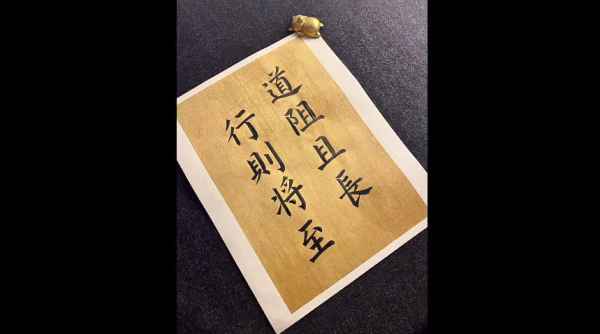 道阻且長
行則将至